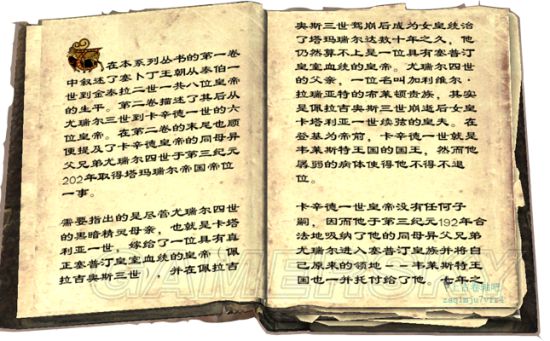 在本系列丛书的第一卷
中叙述了塞卜丁王朝从泰伯一
世到金泰拉二世一共八位皇帝
的生平。第二卷描述了其后从
尤瑞尔三世到卡辛德一世的六
位皇帝。在第二卷的末尾也顺
便提及了卡辛德皇帝的同母异
父兄弟尤瑞尔四世于第三纪元
202年取得塔玛瑞尔帝国帝位
一事。
需要指出的是尽管尤瑞尔四世
的黑暗精灵母亲，也就是卡塔
利亚一世，嫁给了一位具有真
正塞普汀皇室血统的皇帝，佩
拉吉奥斯三世，并在佩拉吉
奥斯三世驾崩后成为女皇统治
了塔玛瑞尔达数十年之久，他
仍然算不上是一位具有塞普汀
皇室血统的皇帝。尤瑞尔四世
的父亲，一位名叫加利维尔·
拉瑞亚特的布莱顿贵族，其实
是佩拉吉奥斯三世崩逝后女皇
卡塔利亚一世续弦的皇夫。在
登基为帝前，卡辛德一世就是
韦莱斯特王国的国王，然而他
孱弱的病体使得他不得不退
位。
卡辛德一世皇帝没有任何子
嗣，因而他于第三纪元192年合
法地吸纳了他的同母异父兄弟
尤瑞尔进入塞普汀皇族并将自
己原来的领地——韦莱斯特王
国也一并托付给了他。七年之
GAMERSKY
上古卷轴吧